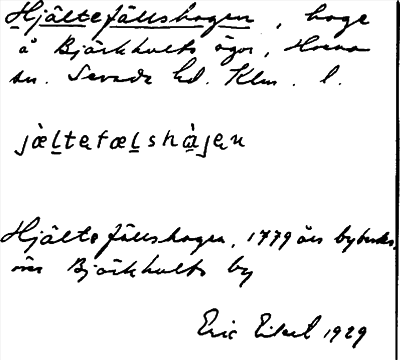 Hjältefällshagen, hage
å Björkhults ägor, Horns
sn. Sevede hd. Klm. l.
jæ̀ltefælshàgen
Hjälte fällshagen, 1779 års
över Björkhults by
Eric 1929